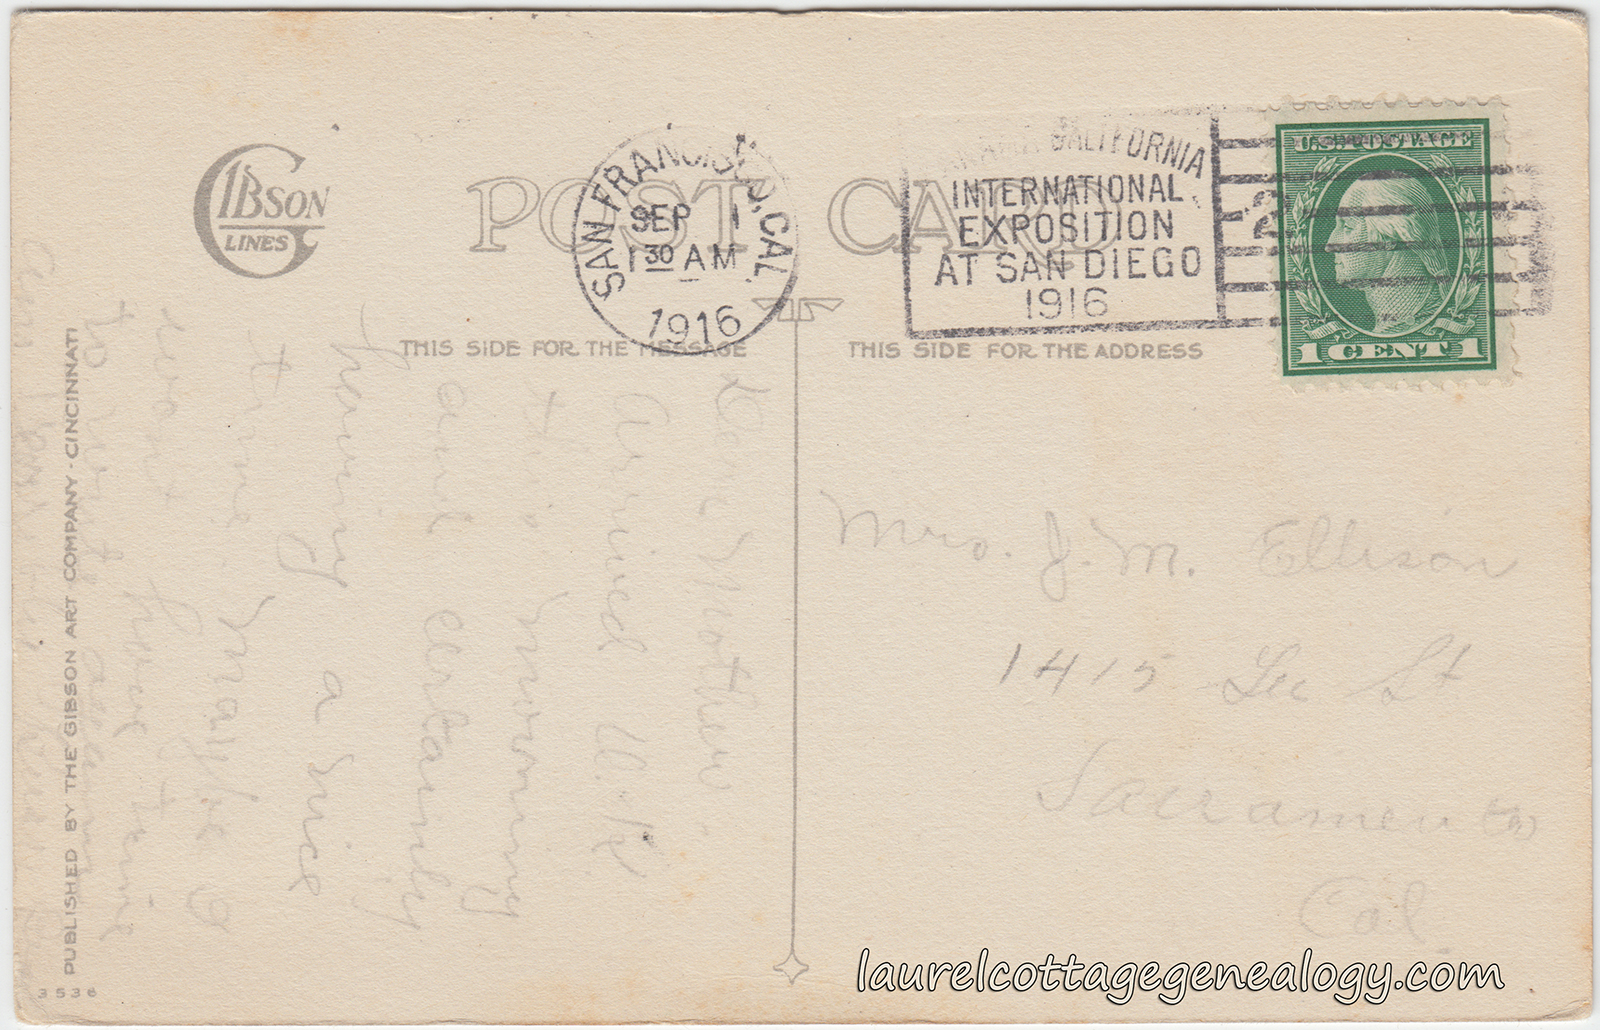 GIBSON
LINES
POST CARD
SAN FRANCISCO, CAL.
SEP 1
1 30 AM
1916
CALIFORNIA
INTERNATIONAL
EXPOSITION
AT SAN DIEGO
1916
2
U.S. POSTAGE
1 CENT 1
THIS SIDE FOR THE MESSAGE
THIS SIDE FOR THE ADDRESS
Dear Mother.
Arrived O.K.
this morning
and certainly
having a nice
time. Maybe I
wont have time
to write
Mrs. J. M. Ellison
1415 Lee St
Sacramento
Cal.
PUBLISHED BY THE GIBSON ART COMPANY - CINCINNATI
3536
laurelcottagegenealogy.com